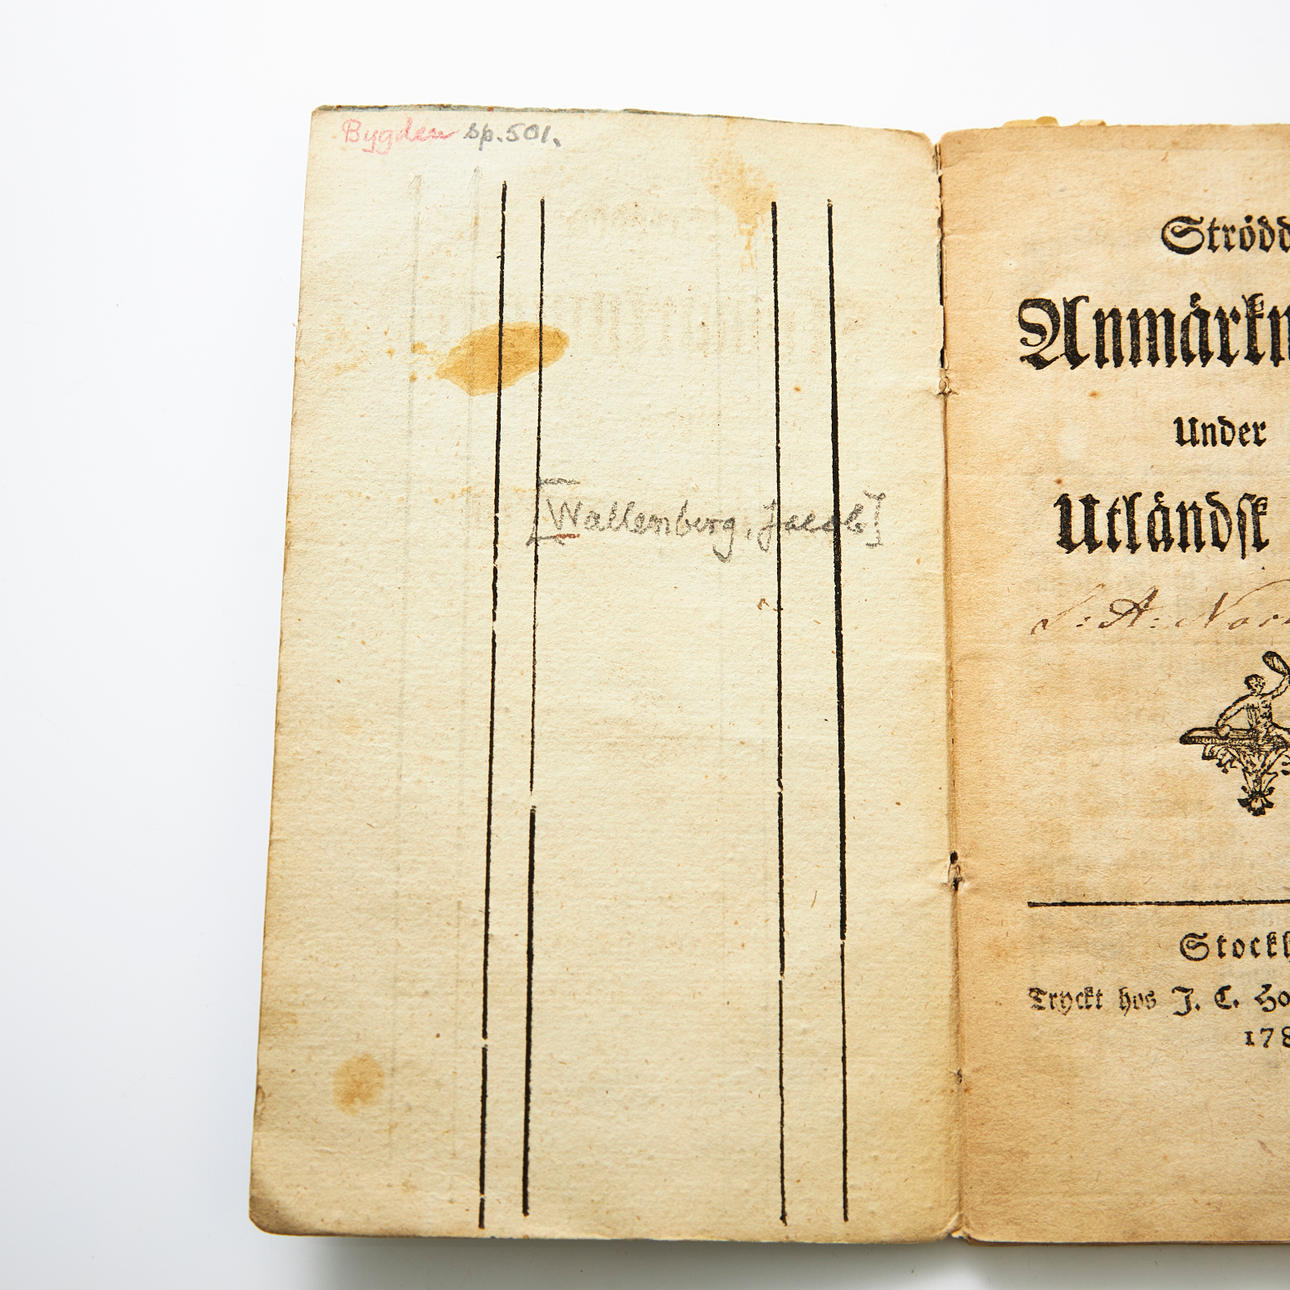 Bygden sp.501.
[Wallenberg, Jacob]
Strödd
Anmärkn
Under
Utländsk
S: A: Nor
Stockh
Tryckt hos J. C. Ho
178